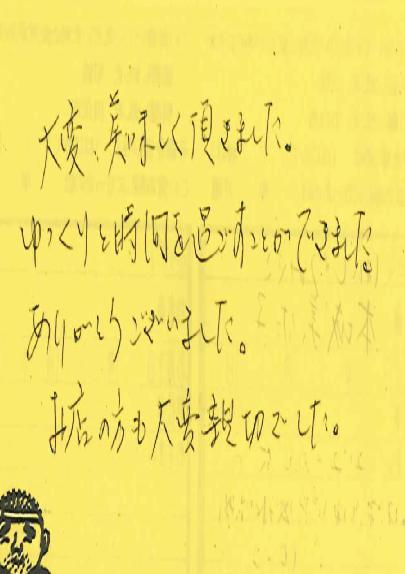 大変、美味しく頂きました。
ゆっくりと時間を過ごすことができました。
ありがとうございました。
お店の方も大変親切でした。